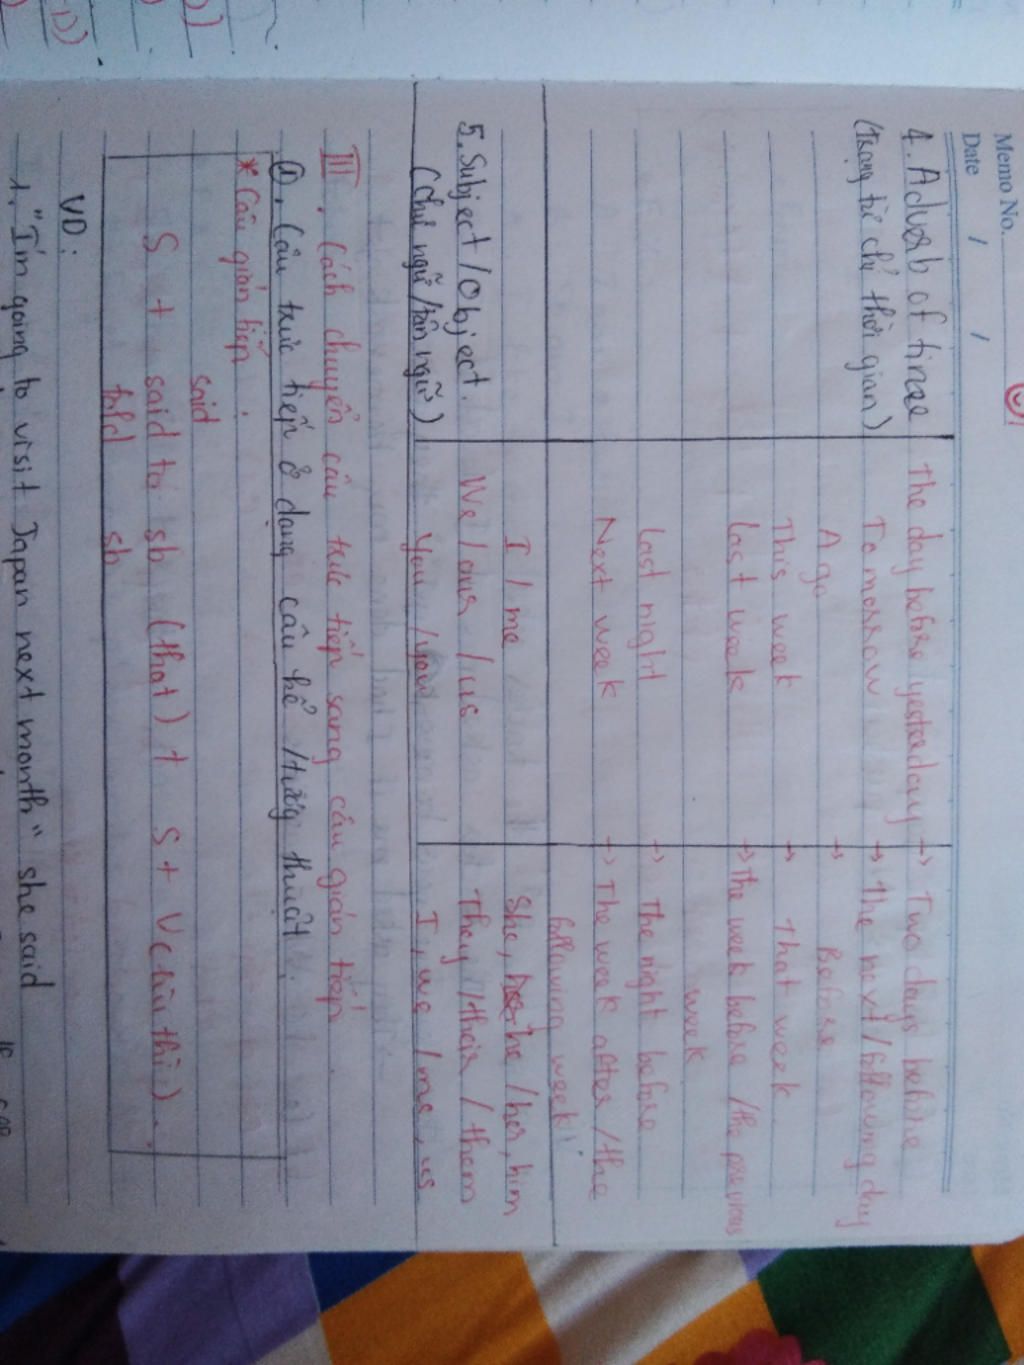 Memo No.
Date / /
4. Adverb of time
(Trạng từ chỉ thời gian)
The day before yesterday → Two days before
Tomorrow → The next / following day
Ago → Before
This week → That week
Last week → The week before / the previous
week
Last night → The night before
Next week → The week after / the
following week
5. Subject / Object.
(Chủ ngữ / tân ngữ)
I / me She, he / her, him
We / our / us They / their / them
You / your I, we / me, us
III. Cách chuyển câu trực tiếp sang câu gián tiếp.
①. Câu trực tiếp ở dạng câu kể / tường thuật.
* Câu gián tiếp:
said
S + said to sb (that) + S + V (lùi thì).
told sb
VD:
1. "I'm going to visit Japan next month" she said